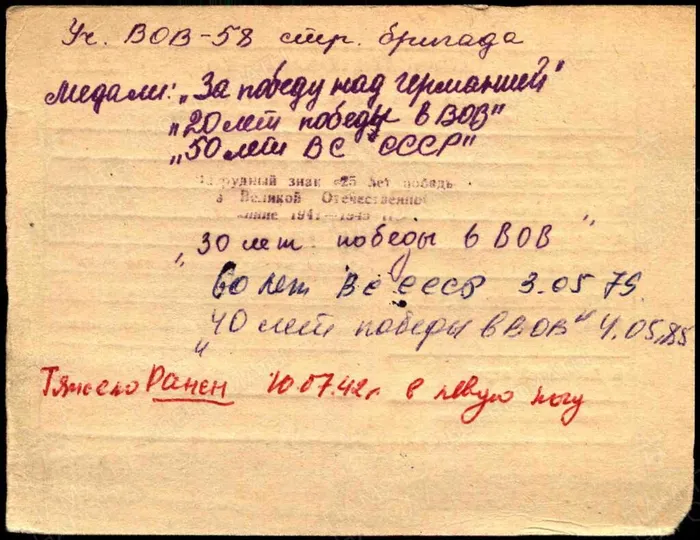 Уч. ВОВ-58 стр. бригада
Медали: „За победу над германией"
„20 лет победы в ВОВ"
„50 лет ВС СССР"
Нагрудный знак «25 лет победы
в Великой Отечественной
войне 1941—1945 гг.
„30 лет победы в ВОВ"
60 лет ВС СССР 3.05 79.
„40 лет победы в ВОВ" 4.05.85
Тяжело Ранен 10.07.42г. в левую ногу